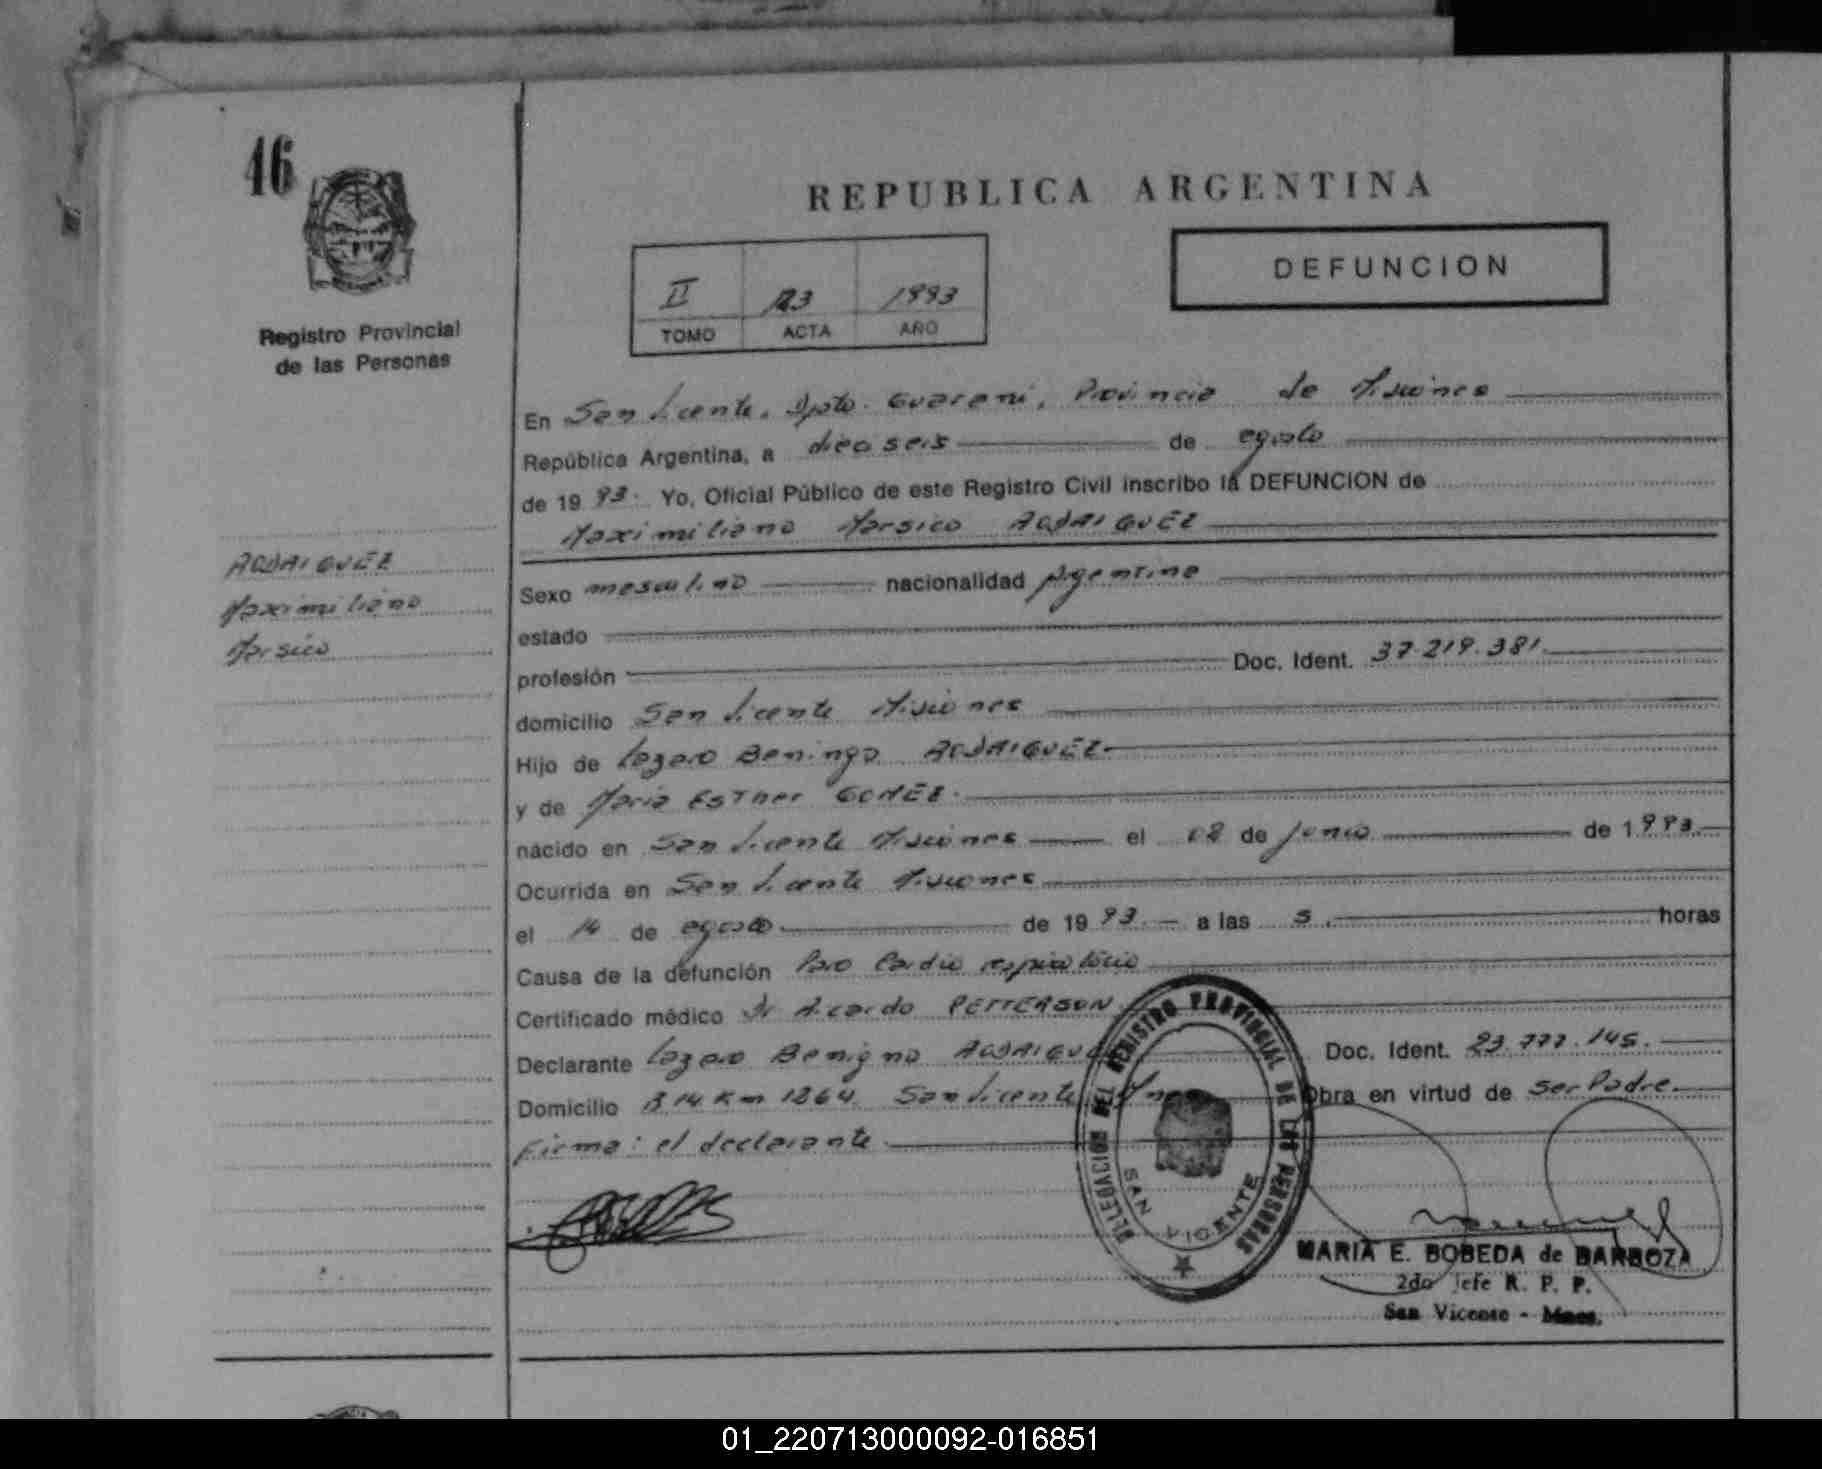 46
REPUBLICA ARGENTINA
DEFUNCION
II 123 1993
TOMO ACTA AÑO
Registro Provincial
de las Personas
En San Vicente, Dpto. Guarani, Provincia de Misiones
República Argentina, a dieciseis de agosto
de 1993. Yo, Oficial Público de este Registro Civil inscribo la DEFUNCION de
Maximiliano Marsico RODRIGUEZ
RODRIGUEZ
Maximiliano
Marsico
Sexo masculino nacionalidad Argentina
estado
profesión Doc. Ident. 37.219.381.
domicilio San Vicente Misiones
Hijo de Lazaro Beningo RODRIGUEZ.
y de Maria Esther GOMEZ.
nacido en San Vicente Misiones el 08 de junio de 1993.
Ocurrida en San Vicente Misiones
el 14 de agosto de 1993. a las 5. horas
Causa de la defunción Paro Cardio respiratorio
Certificado médico Dr Ricardo PETTERSON
Declarante Lazaro Benigno RODRIGUEZ Doc. Ident. 23.777.145.
Domicilio R 14 Km 1264 San Vicente Mnes Obra en virtud de ser Padre.
Firma: el declarante
DELEGACION DEL REGISTRO PROVINCIAL DE LAS PERSONAS
SAN VICENTE
MARIA E. BOBEDA de BARBOZA
2do Jefe R. P. P.
San Vicente - Mnes.
01_220713000092-016851